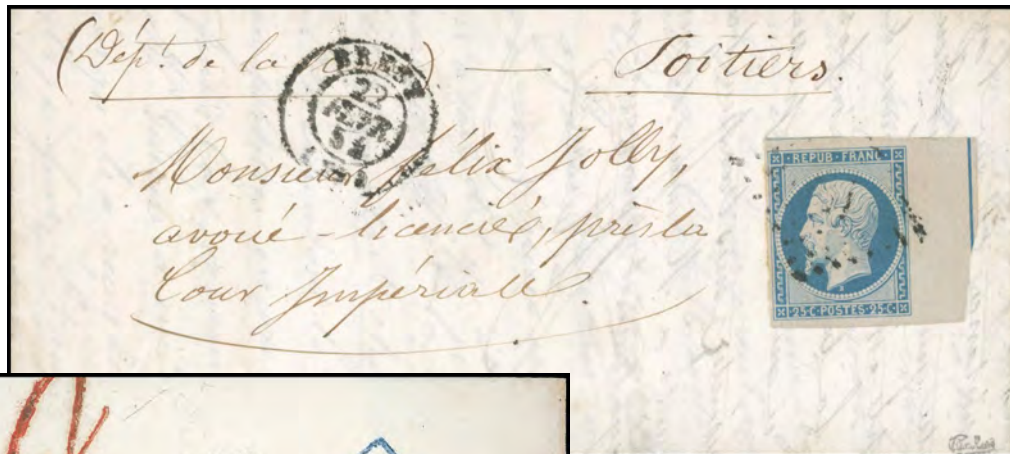 (Dép.t de la — Poitiers.
BREST
22
FEVR
54
Monsieur Félix Jolly,
avoué-licencié, près la
Cour Impériale
REPUB FRANC
25 C POSTES 25 C